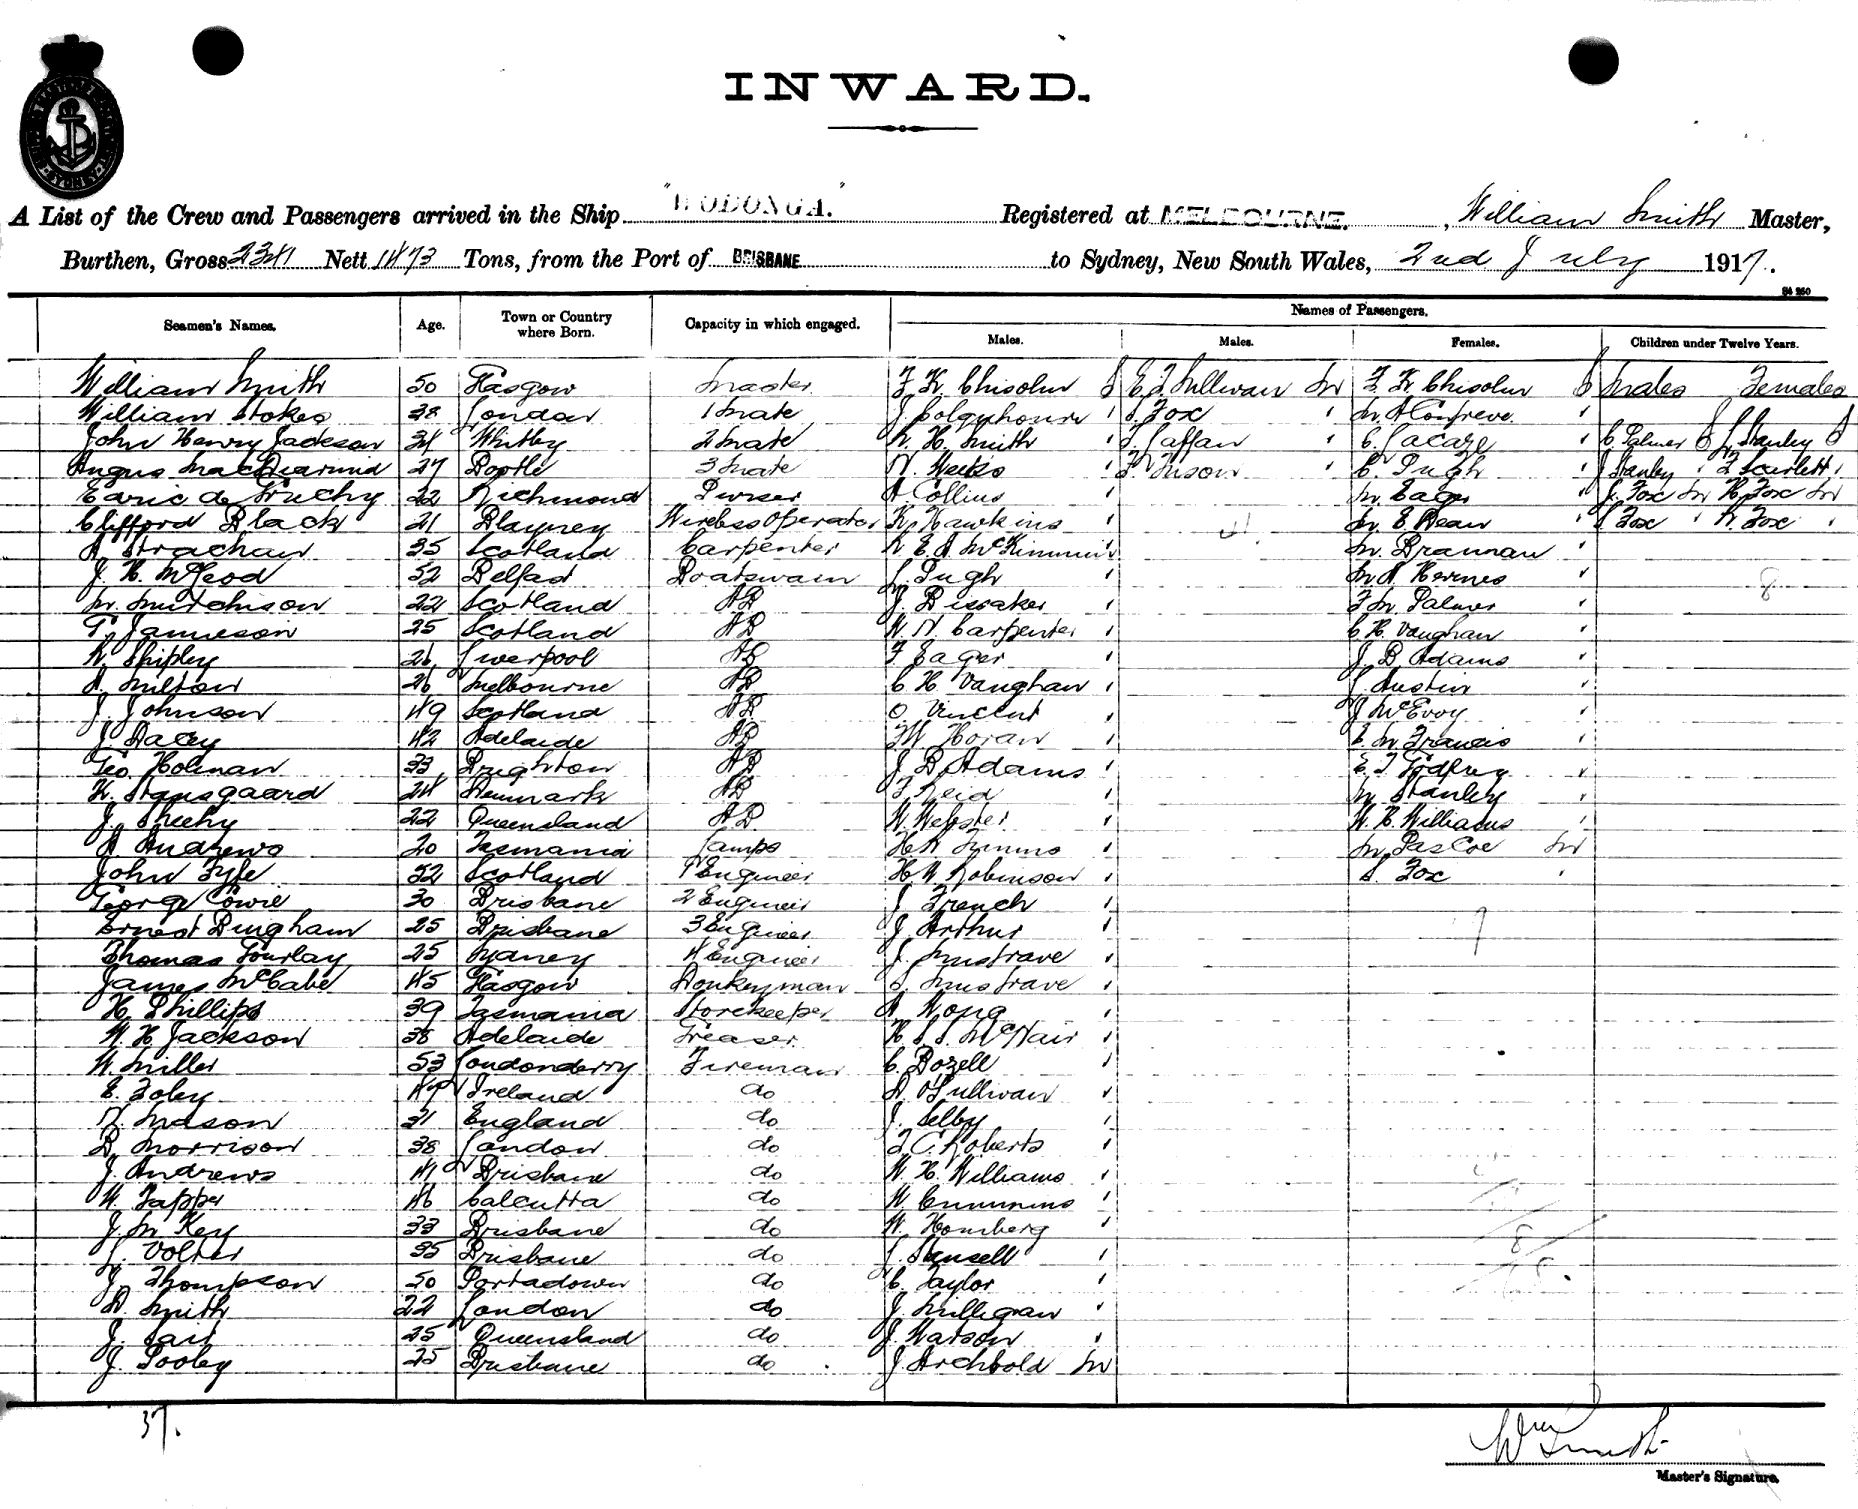 INWARD.
A List of the Crew and Passengers arrived in the Ship "WODONGA." Registered at MELBOURNE. , William Smith Master,
Burthen, Gross 2341 Nett 1473 Tons, from the Port of BRISBANE to Sydney, New South Wales, 2nd July 1917.
Seamen's Names. Age. Town or Country where Born. Capacity in which engaged. Names of Passengers.
Males. Males. Females. Children under Twelve Years.
William Smith 50 Glasgow Master F K Chisolm S E J Sullivan M F K Chisolm S Males Females
William Stokes 38 London 1 Mate J Colquhoun J. Fox M A Congreve
John Henry Jackson 34 Whitby 2 Mate R. H. Smith J. Laffan C. Lacaze C Palmer S J Stanley S
Angus MacDiarmid 27 Bootle 3 Mate N. Weeks F. Tuson C. Pugh J Stanley F Scarlett
Edric de 22 Richmond Purser A Collins M. Eager J. Fox M K Fox M
Clifford Black 21 Blayney Wireless Operator K. Hawkins M. E. Bean S Fox R. Fox
A Strachan 35 Scotland Carpenter R E A McKimmin M. Brannan
J. K. McLeod 52 Belfast Boatswain L. Pugh M A Kermes 8
M. Mutchison 22 Scotland AB J. Bissaker F M. Palmer
T. Jamieson 25 Scotland AB W. N. Carpenter C K Vaughan
R. Shipley 26 Liverpool AB F Eager J. B. Adams
A Milton 26 Melbourne AB C K Vaughan J. Austin
J. Johnson 49 Scotland AB O. Vincent J McEvoy
J. Dacey 42 Adelaide AB F W Horan E. M. Francis
Geo. Holman 33 Brighton AB J. B. Adams E. J Godfrey
K. Stansgaard 24 Denmark AB F. Reid M Stanley
J. Sheehy 22 Queensland AB W. Webster W. K. Williams
A Andrews 20 Tasmania Lamps H A Timms M. Pascoe M
John Fyfe 52 Scotland 1 Engineer H W Robinson S. Fox
George Cowie 30 Brisbane 2 Engineer J French
Ernest Bingham 25 Brisbane 3 Engineer J Arthur
Thomas Gourlay 25 Sydney 4 Engineer J. Mustrave
James McCabe 45 Glasgow Donkeyman S. Mustrave
H. Phillips 39 Tasmania Storekeeper A Wong
W. H. Jackson 38 Adelaide Greaser K S. S. McNair
W. Miller 53 Londonderry Fireman C. Bozell
E. Foley 47 Ireland do D. O'Sullivan
N. Mason 31 England do J. Selby
D. Morrison 38 London do F. C. Roberts
J. Andrews 41 Brisbane do W. H. Williams
W. Tapper 46 Calcutta do W. Cummins
J. M. Key 33 Brisbane do W. Homberg
J. Volter 35 Brisbane do J. Hansell
J. Thompson 50 Portadown do C. Taylor
A. Smith 22 London do J. Milligan
J. Tait 25 Queensland do J. Watson
J. Pooley 25 Brisbane do J. Archbold M
37.
Wm Smith
Master's Signature.